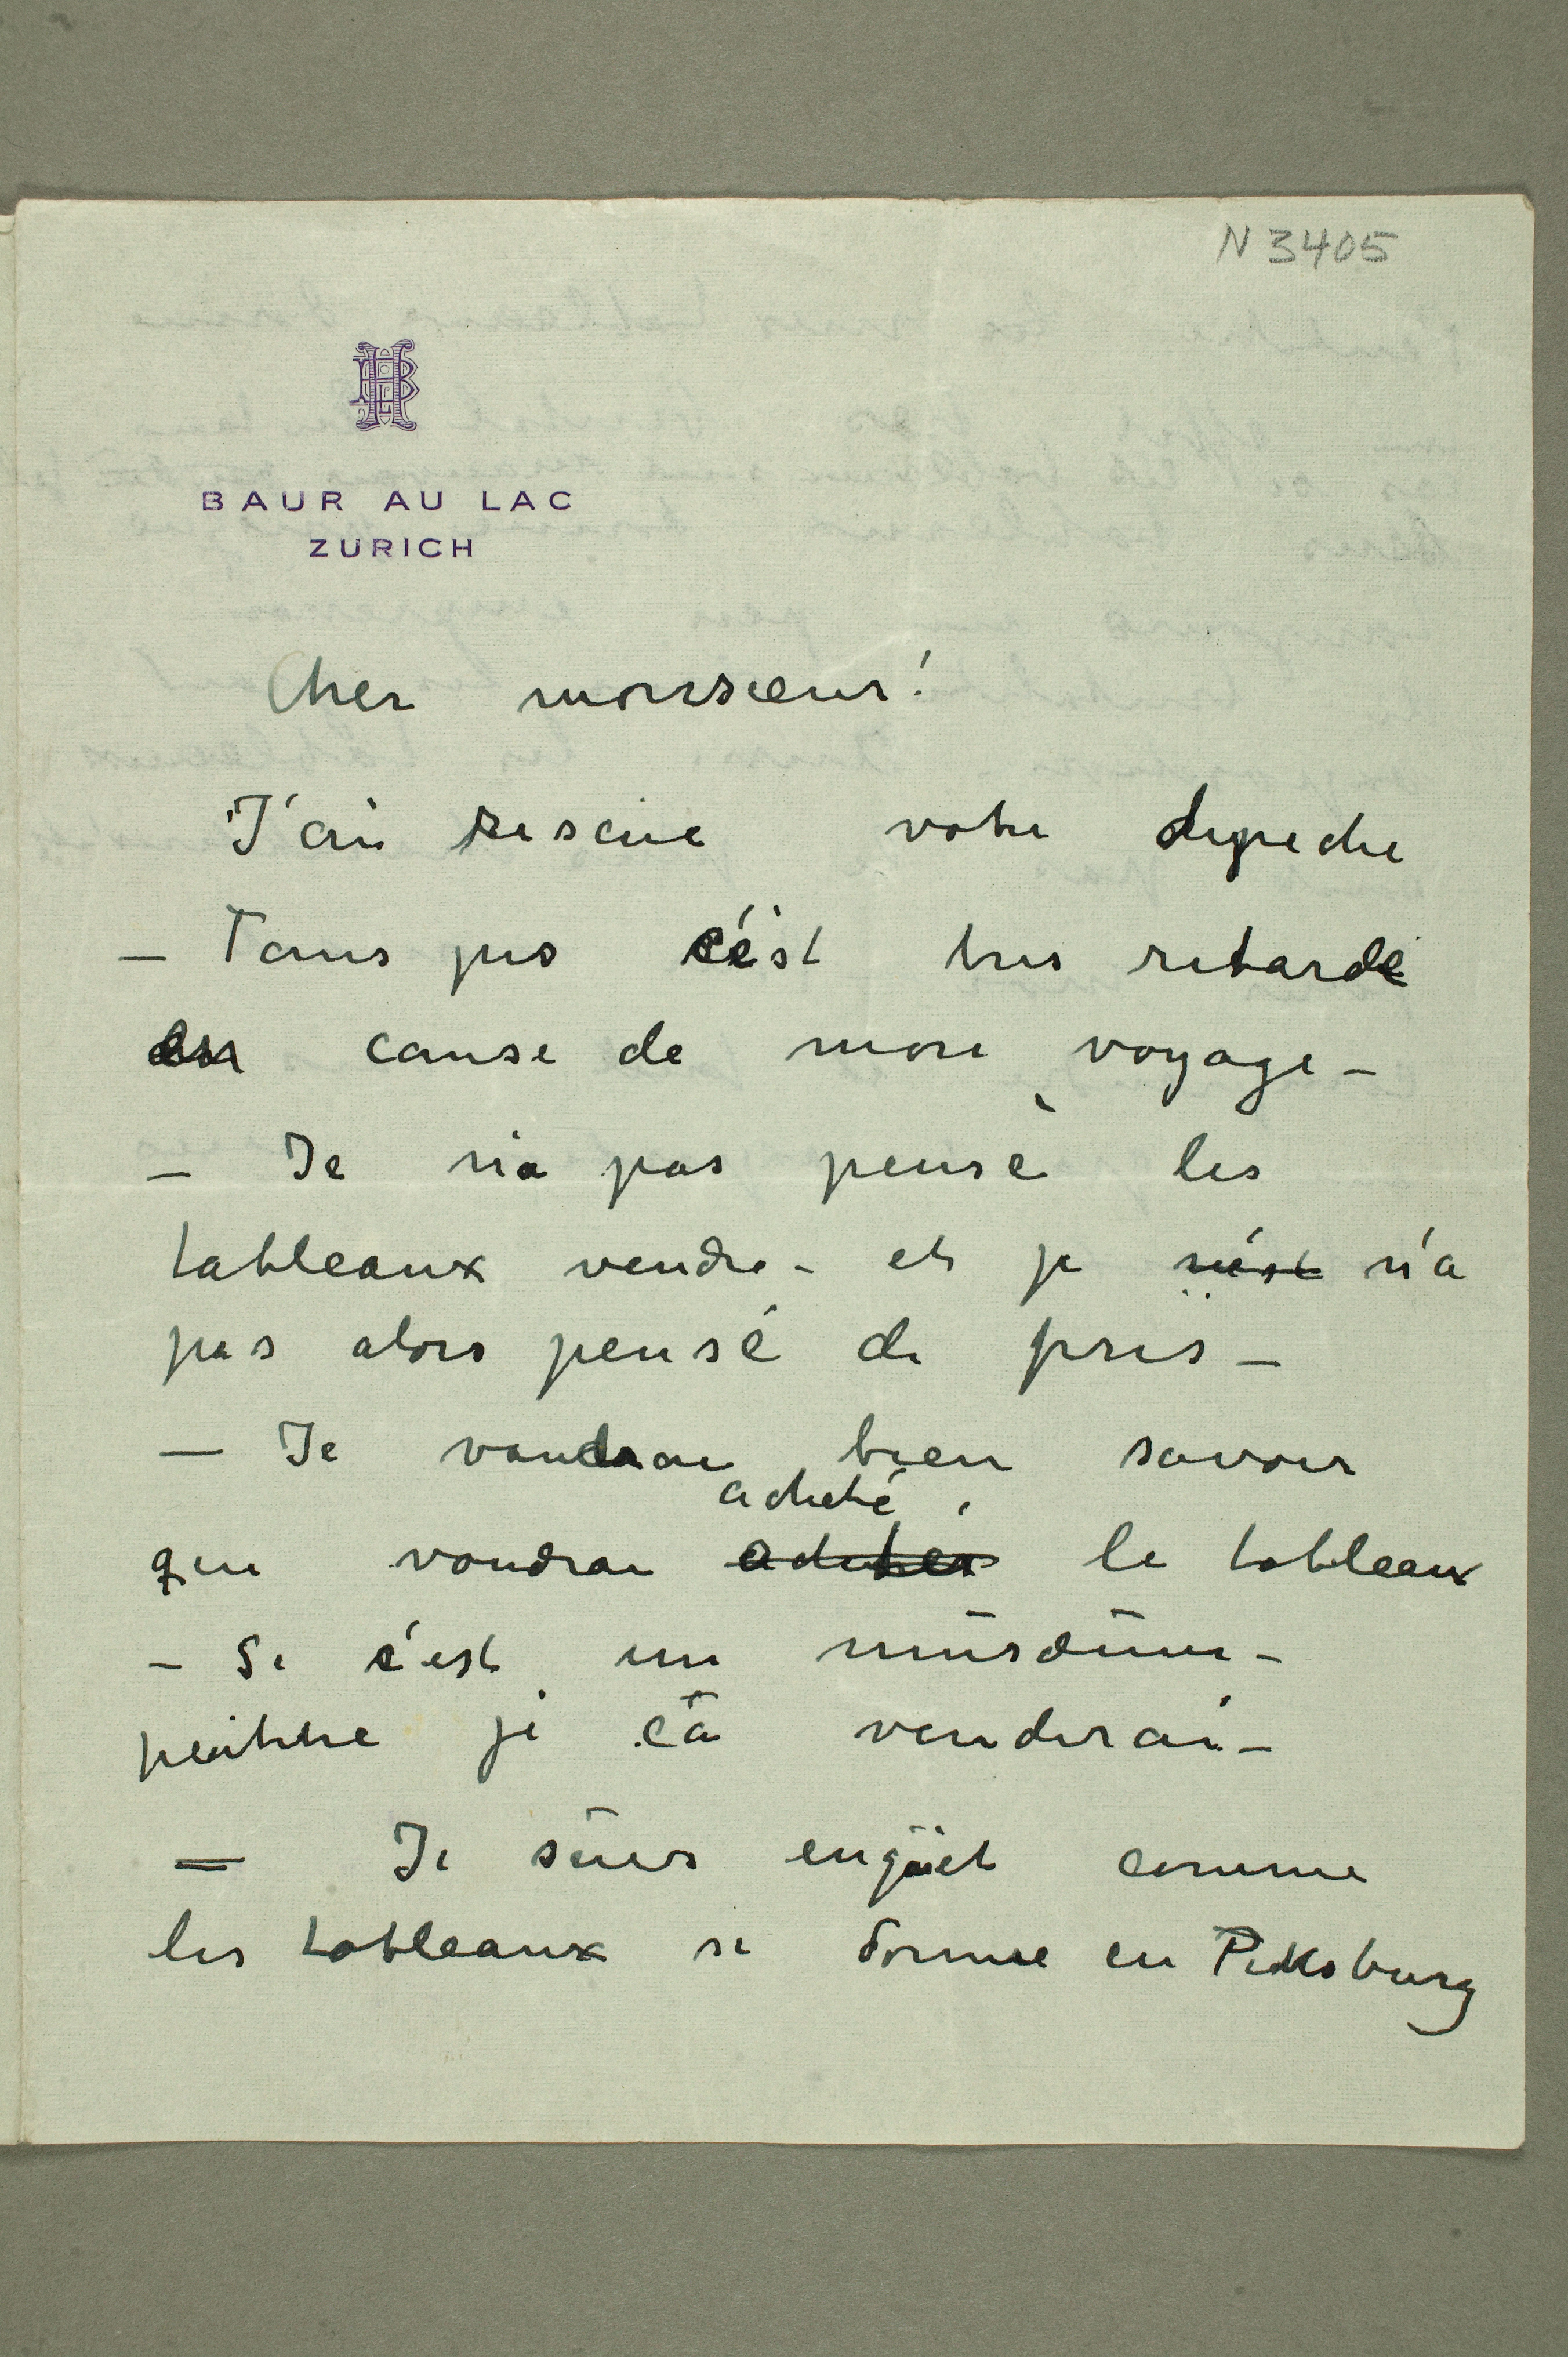 N 3405
HB
BAUR AU LAC
ZURICH
Cher monsieur!
J'ai resciue votre depeche
– Tans pis c'ést tres retardé
en cause de mon voyage –
– Je n'a pas pensé les
tableaux vendre – et je n'ést n'a
pas alors pensé de pris –
– Je voudrai bien savoir
acheté
qui voudrai achetér le tableaux
– Si c'est un musæum –
peùttre je cā venderai –
— Je suis enqüiet comme
les tableaux se donne en Pittsburg